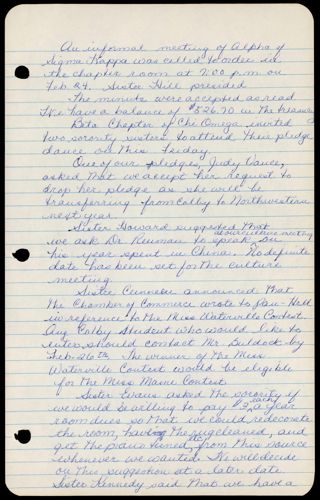 An informal meeting of Alpha of
Sigma Kappa was called to order in
the chapter room at 7:00 p.m. on
Feb. 24. Sister Hill presided
The minutes were accepted as read
We have a balance of $526.70 in the treasury
Beta Chapter of Chi Omega invited
two sorority sisters to attend their pledge
dance on this Friday.
One of our pledges, Judy Vance,
asked that we accept her request to
drop her pledge as she will be
transferring from Colby to Northwestern
next year.
Sister Howard suggested that
we ask Dr. to speak at our culture meeting on
his year spent in China. No definite
date has been set for the culture
meeting.
Sister announced that
the Chamber of Commerce wrote to Pan-Hell
in reference to the Miss Waterville Contest.
Any Colby student who would like to
enter should contact Mr. by
Feb. 26th. The winner of the Miss
Waterville Contest would be eligible
for the Miss Maine Contest.
Sister Evans asked the sorority if
we would be willing to pay $2 each a year
room dues so that we could redecorate
the room, have the rug cleaned, and
get the piano tuned, etc. from this source
whenever we wanted. We will decide
on this suggestion at a later date.
Sister Kennedy said that we have a